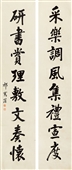 采樂調風集禮宣度
研書賞理敷文奏懷